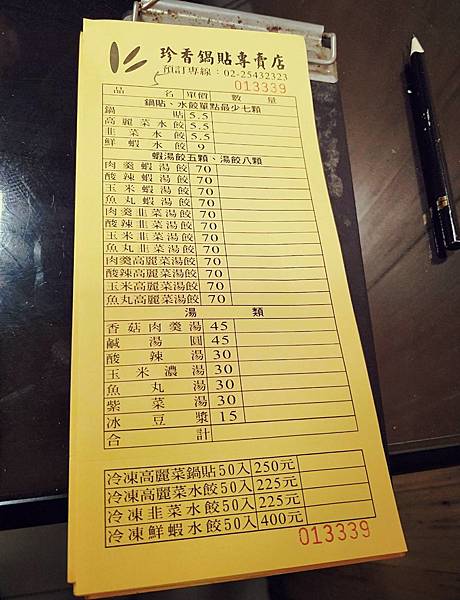 珍香鍋貼專賣店
預訂專線：02-25432323
013339
品名 單價 數量
鍋貼、水餃單點最少七顆
鍋貼 5.5
高麗菜水餃 5.5
韭菜水餃 5.5
鮮蝦水餃 9
蝦湯餃五顆、湯餃八顆
肉羹蝦湯餃 70
酸辣蝦湯餃 70
玉米蝦湯餃 70
魚丸蝦湯餃 70
肉羹韭菜湯餃 70
酸辣韭菜湯餃 70
玉米韭菜湯餃 70
魚丸韭菜湯餃 70
肉羹高麗菜湯餃 70
酸辣高麗菜湯餃 70
玉米高麗菜湯餃 70
魚丸高麗菜湯餃 70
湯類
香菇肉羹湯 45
鹹湯圓 45
酸辣湯 30
玉米濃湯 30
魚丸湯 30
紫菜湯 30
冰豆漿 15
合計
冷凍高麗菜鍋貼50入 250元
冷凍高麗菜水餃50入 225元
冷凍韭菜水餃50入 225元
冷凍鮮蝦水餃50入 400元
013339